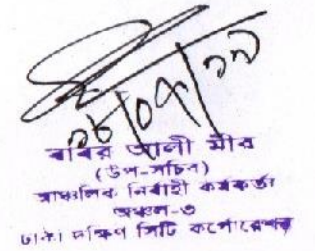 ১৮/০৭/১৭
বাবর আলী মীর
(উপ-সচিব)
আঞ্চলিক নির্বাহী কর্মকর্তা
অঞ্চল-৩
ঢাকা দক্ষিণ সিটি কর্পোরেশন